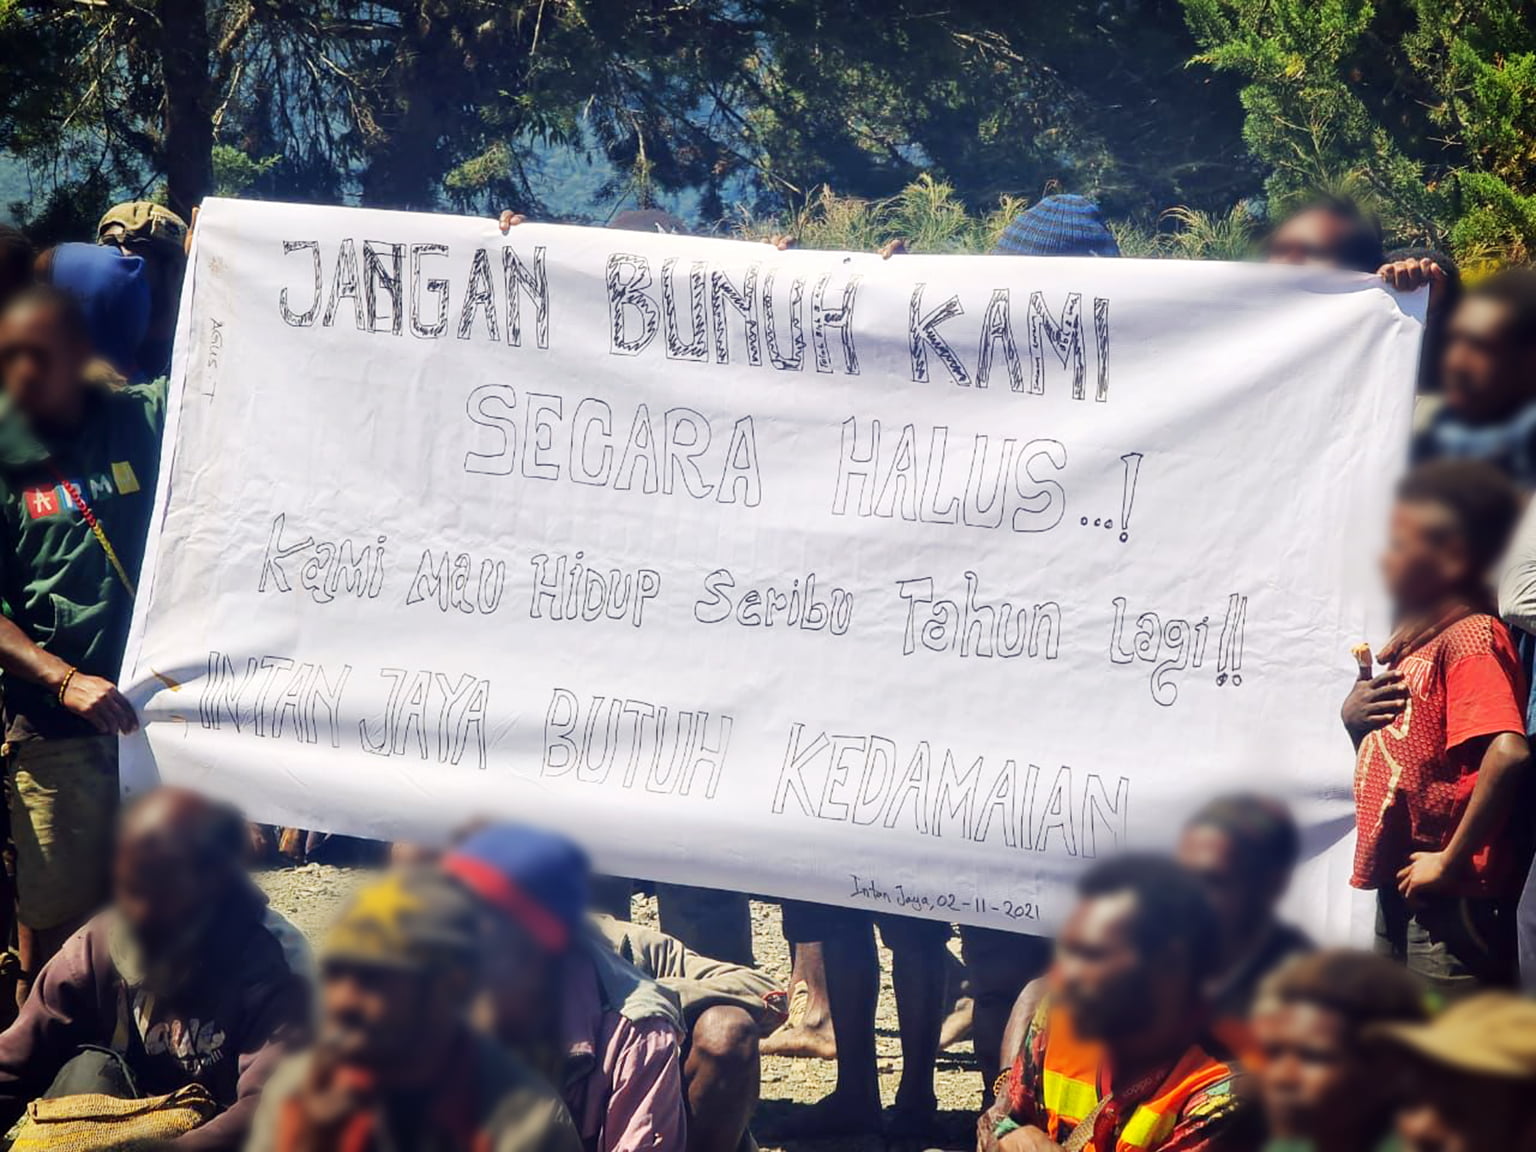 JANGAN BUNUH KAMI
SECARA HALUS...!
Kami Mau HiDUP Seribu Tahun Lagi!!
INTAN JAYA BUTUH KEDAMAIAN
Intan Jaya, 02-11-2021
AGUS T